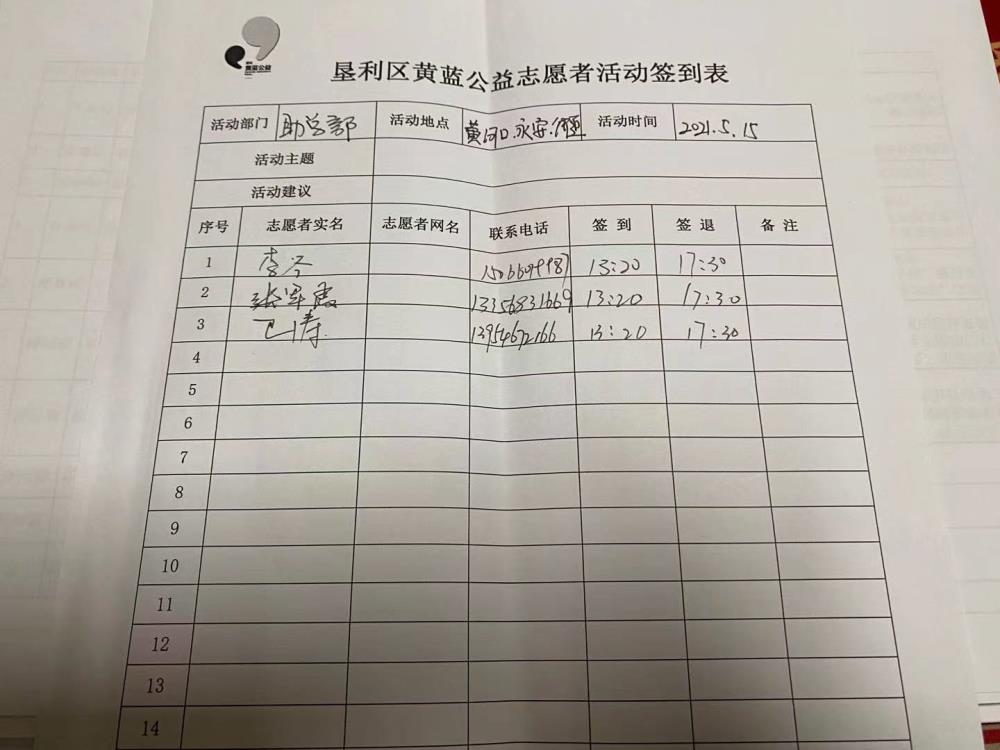 黄蓝公益
垦利区黄蓝公益志愿者活动签到表
活动部门 助学部 活动地点 黄河口.永安. 活动时间 2021.5.15
活动主题
活动建议
序号 志愿者实名 志愿者网名 联系电话 签到 签退 备注
1 13:20 17:30
2 张军霞 13356831669 13:20 17:30
3 13954672166 13:20 17:30
4
5
6
7
8
9
10
11
12
13
14